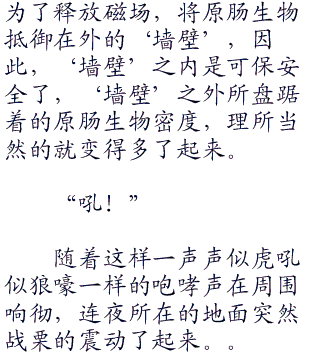 为了释放磁场，将原肠生物
抵御在外的‘墙壁’，因
此，‘墙壁’之内是可保安
全了，‘墙壁’之外所盘踞
着的原肠生物密度，理所当
然的就变得多了起来。
“吼！”
随着这样一声声似虎吼
似狼嚎一样的咆哮声在周围
响彻，连夜所在的地面突然
战栗的震动了起来。。